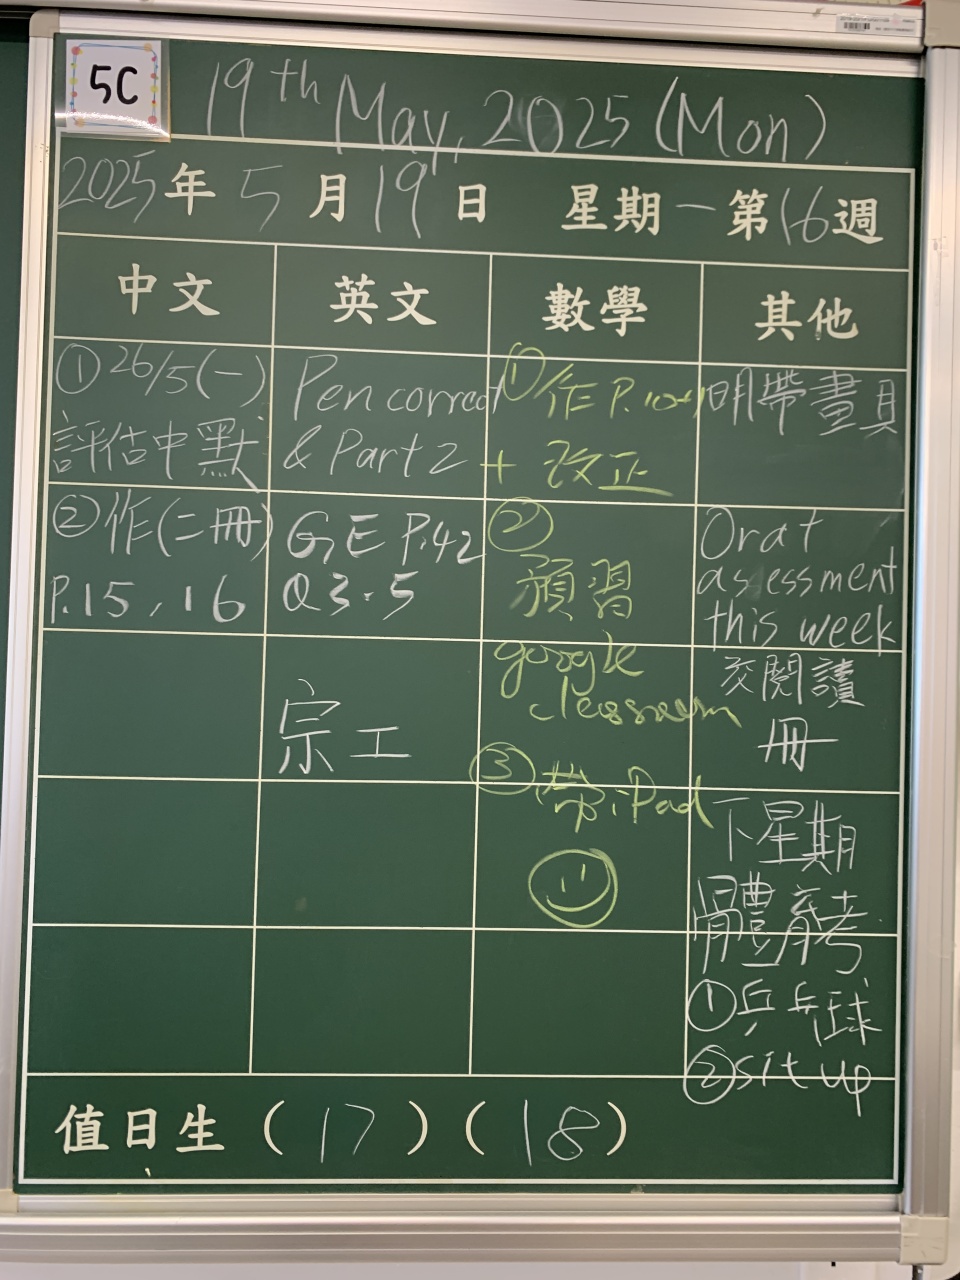 5C
19th May, 2025 (Mon)
2025年5月19日 星期一第16週
中文
英文
數學
其他
①26/5(一)
評估中默
②作(二冊)
P.15, 16
Pen correct
& Part 2
G.E P.42
Q3.5
宗工
①作P.10
+ 改正
②
預習
google
classroom
③帶iPad
明帶畫具
Orat
assessment
this week
交閱讀
冊
下星期
體育考
①乒乓球
②sit up
值日生 (17) (18)